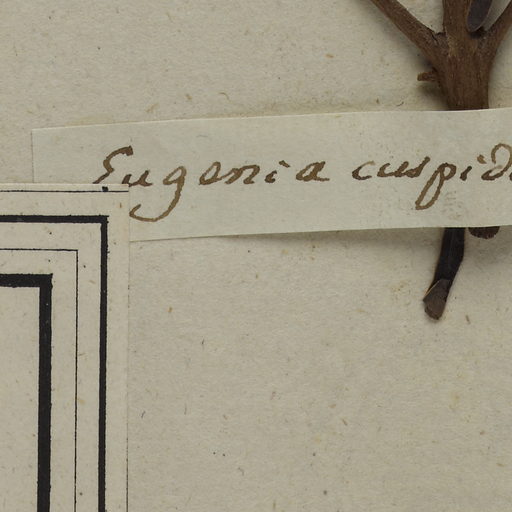 Eugenia cuspid